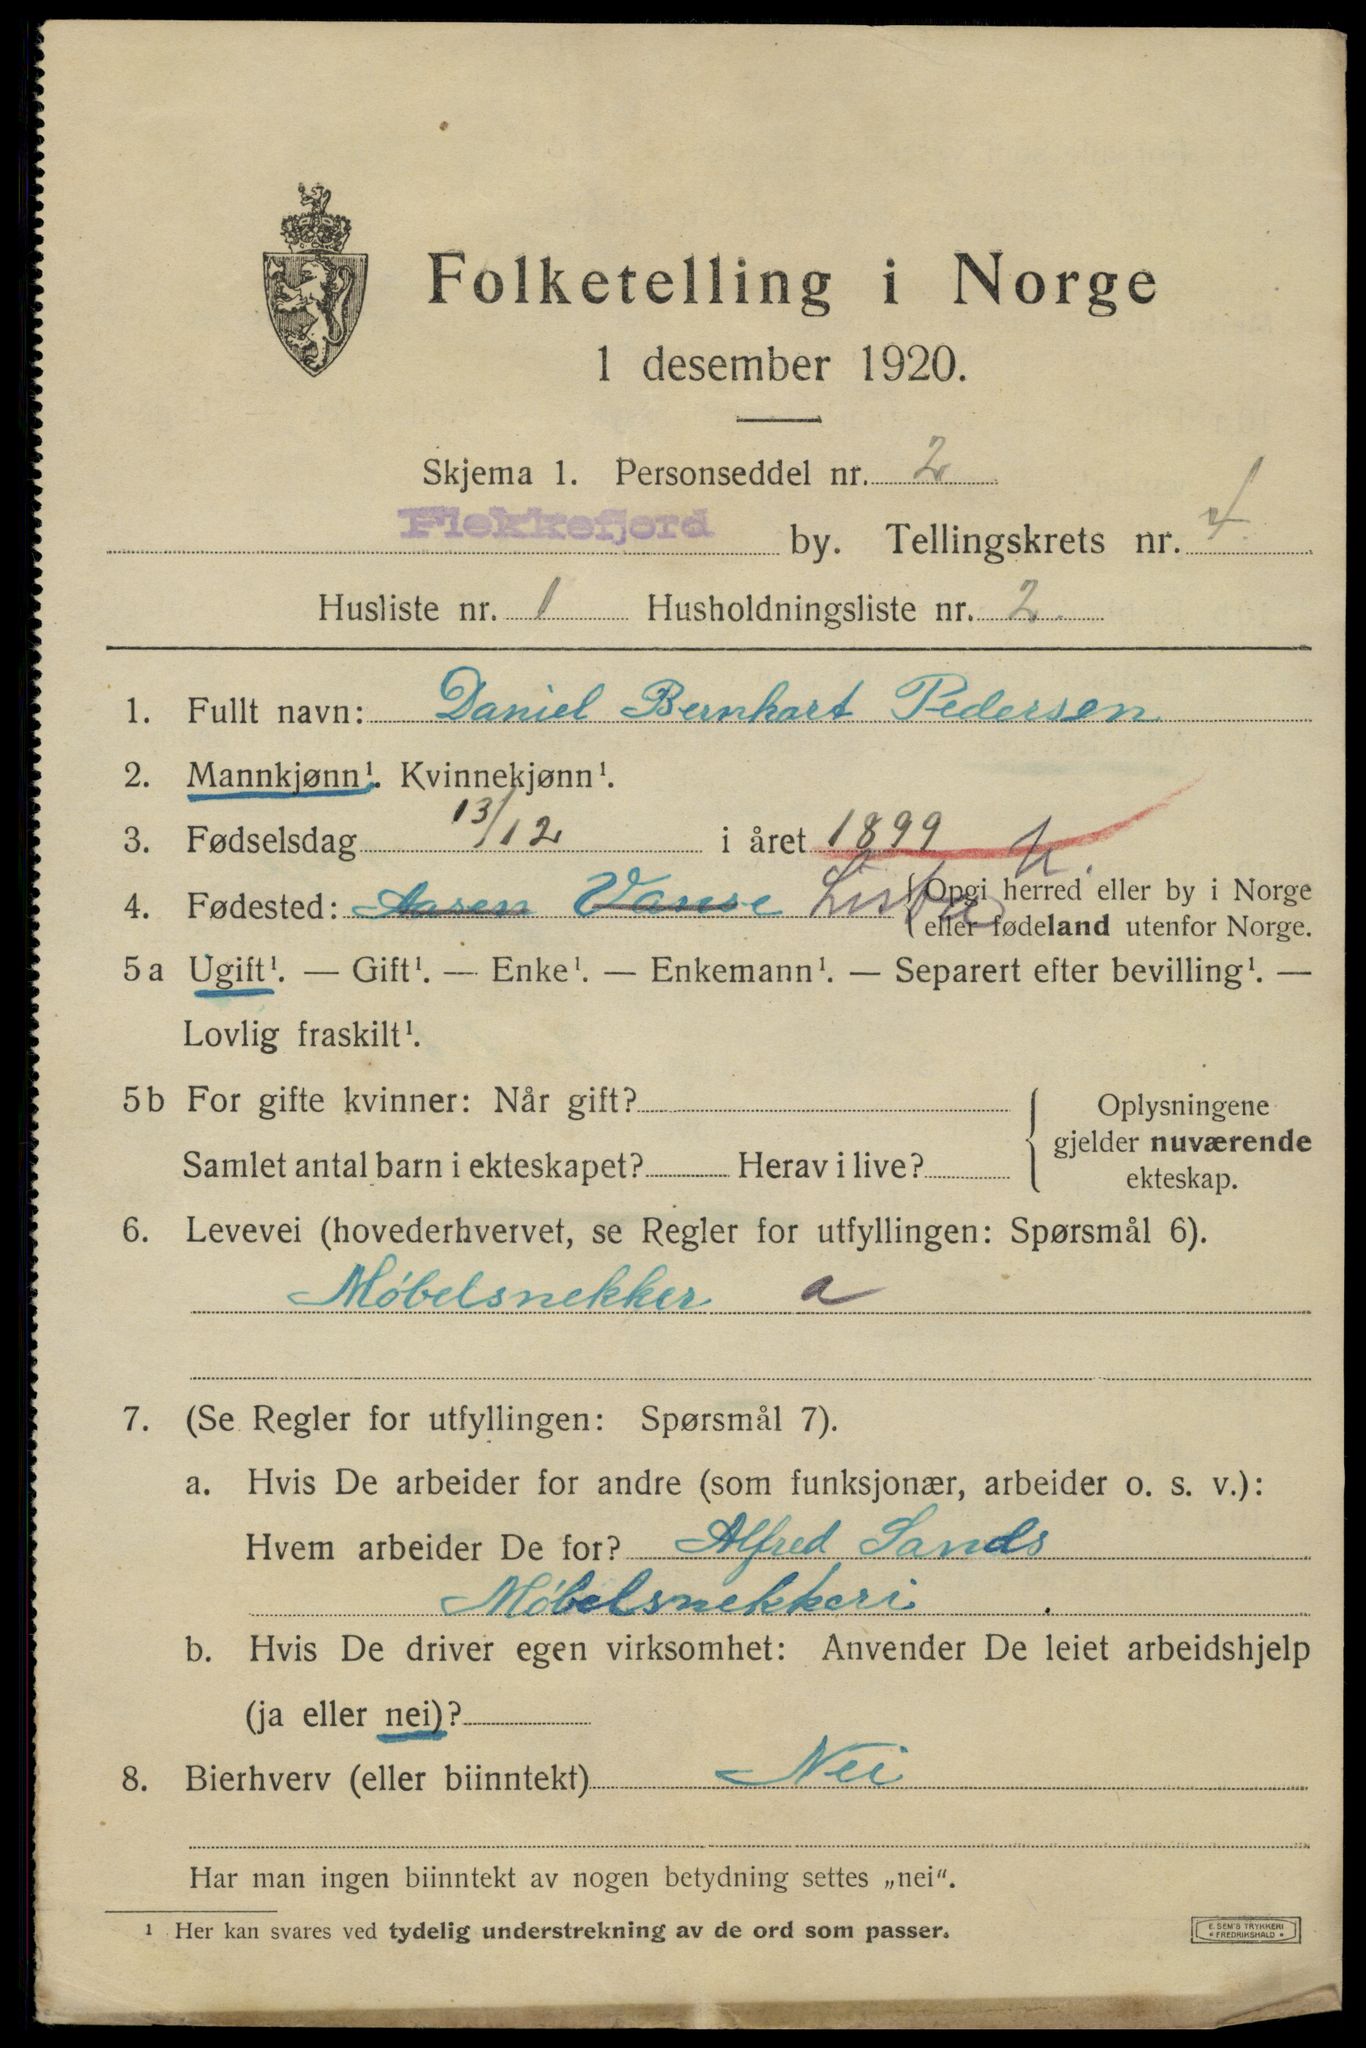 Folketelling i Norge
1 desember 1920.
Skjema 1. Personseddel nr. 2
Flekkefjord by. Tellingskrets nr. 4
Husliste nr. 1 Husholdningsliste nr. 2
1. Fullt navn: Daniel Bernhart Pedersen
2. Mannkjønn¹. Kvinnekjønn¹.
3. Fødselsdag 13/12 i året 1899
4. Fødested: Aasen Vanse {Opgi herred eller by i Norge
eller fødeland utenfor Norge.
5a Ugift¹. — Gift¹. — Enke¹. — Enkemann¹. — Separert efter bevilling¹. —
Lovlig fraskilt¹.
5b For gifte kvinner: Når gift?
Samlet antal barn i ekteskapet? Herav i live?
{ Oplysningene
gjelder nuværende
ekteskap.
6. Levevei (hovederhvervet, se Regler for utfyllingen: Spørsmål 6).
Møbelsnekker a
7. (Se Regler for utfyllingen: Spørsmål 7).
a. Hvis De arbeider for andre (som funksjonær, arbeider o. s. v.):
Hvem arbeider De for? Alfred Sands
Møbelsnekkeri
b. Hvis De driver egen virksomhet: Anvender De leiet arbeidshjelp
(ja eller nei)?
8. Bierhverv (eller biinntekt) Nei
Har man ingen biinntekt av nogen betydning settes „nei“.
¹ Her kan svares ved tydelig understrekning av de ord som passer.
E. SEM'S TRYKKERI
FREDRIKSHALD